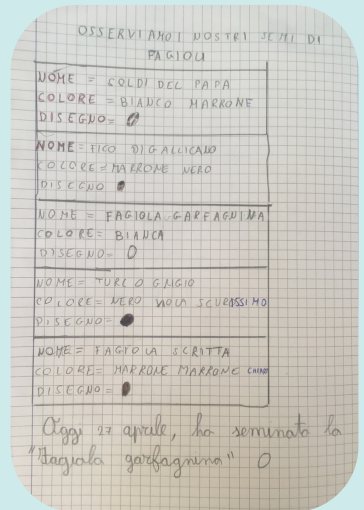 OSSERVIAMO I NOSTRI SEMI DI
FAGIOLI
NOME = COLDI DEL PAPA
COLORE = BIANCO MARRONE
DISEGNO=
NOME = FICO DI GALLICANO
COLORE = MARRONE NERO
DISEGNO
NOME = FAGIOLA GARFAGNINA
COLORE= BIANCA
DISEGNO=
NOME= TURCO GRIGIO
COLORE= NERO VIOLA SCURISSIMO
DISEGNO=
NOME= FAGIOLA SCRITTA
COLORE= MARRONE MARRONE CHIARO
DISEGNO=
Oggi 27 aprile, ho seminato la
"Fagiola garfagnina"